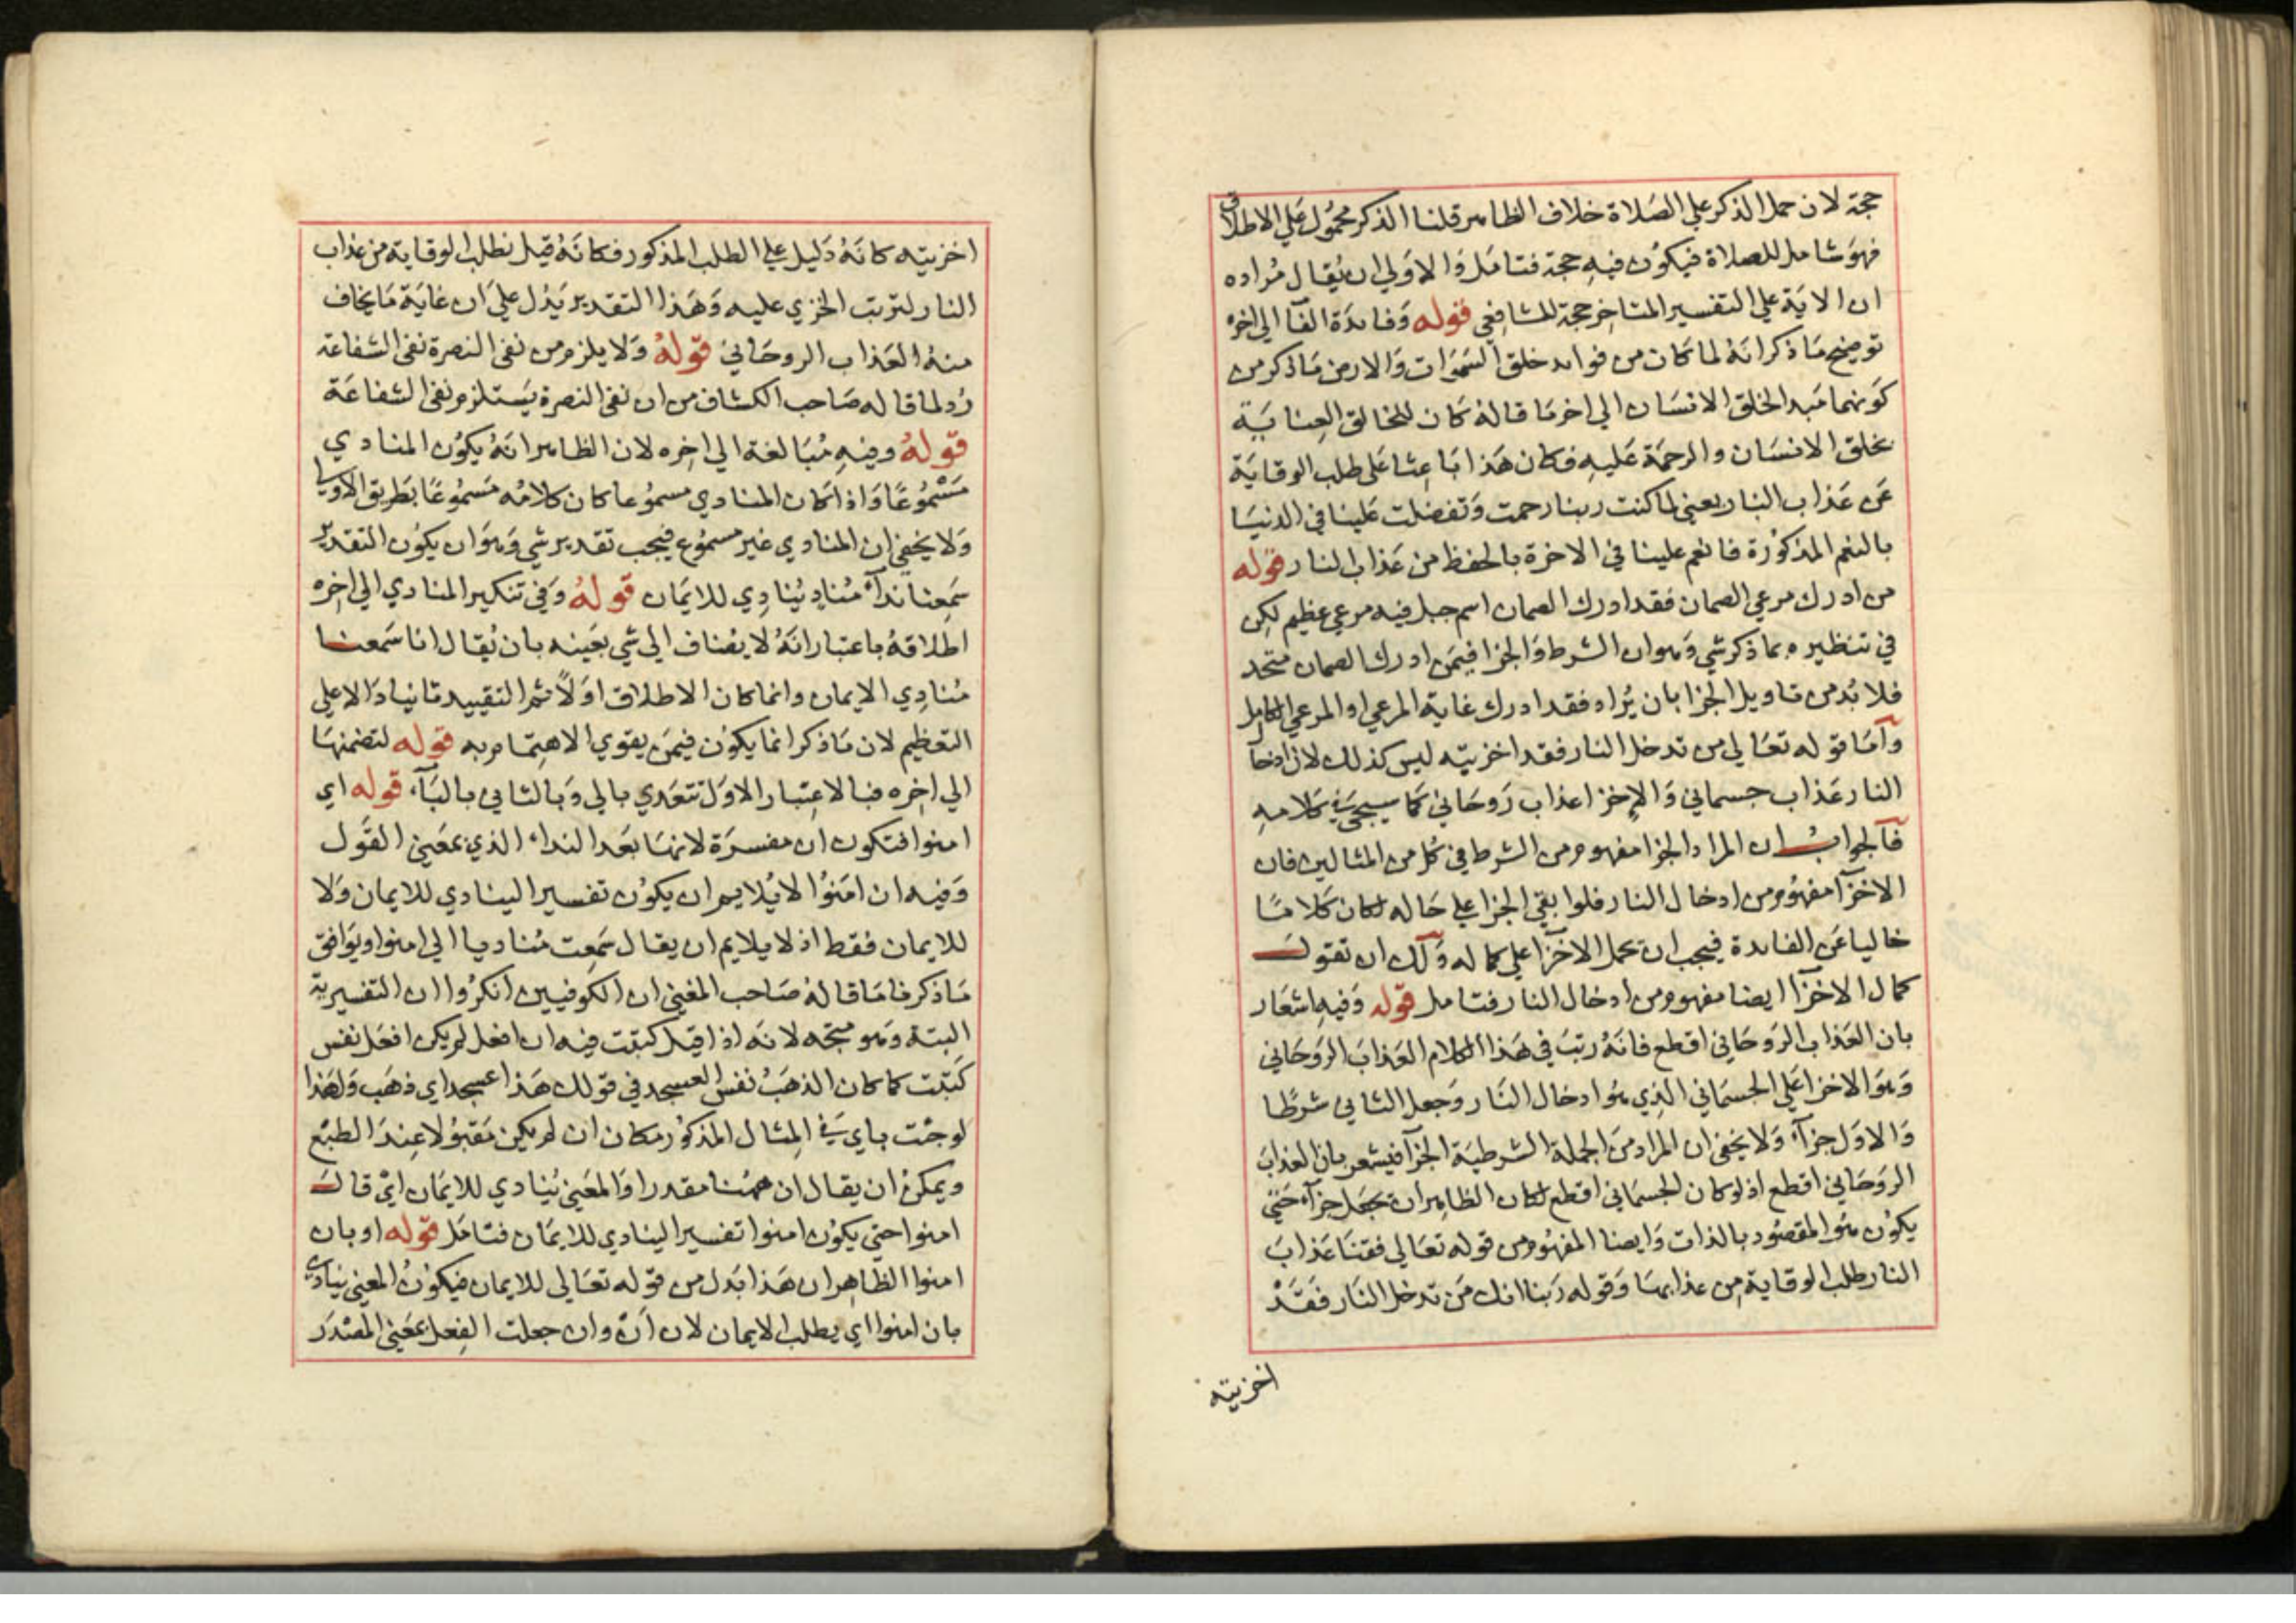 حجة لان حمل الذكر علي الصلاة خلاف الظاهر قلنا الذكر محمول علي الاطلاق
فهو شامل للصلاة فيكون فيه حجة فتامل والاولي ان يقال مراده
ان الاية علي التفسير المتاخر حجة للشافعي قوله وفايدة الفآ الي اخره
توضيح ما ذكر انه لما كان من فوايد خلق السموات والارض ما ذكر من
كونهما مبدا لخلق الانسان الي اخر ما قاله كان للخالق العناية
بخلق الانسان والرحمة عليه فكان هذا باعثا علي طلب الوقاية
عن عذاب النار يعني لما كنت ربنا رحمت وتفضلت علينا في الدنيا
بالنعم المذكورة فانعم علينا في الاخرة بالحفظ من عذاب النار قوله
من ادرك مرعي الصمان فقد ادرك الصمان اسم جبل فيه مرعي عظيم لكن
في تنظيره بما ذكر شي وهو ان الشرط والجزا فيمن ادرك الصمان متحد
فلا بد من تاويل الجزا بان يراد فقد ادرك غاية المرعي او المرعي الكامل
وآما قوله تعالي من تدخل النار فقد اخزيته ليس كذلك لان ادخال
النار عذاب جسماني والاخزا عذاب روحاني كما سيجي في كلامه
فآلجواب ان المراد الجزا مفهوم من الشرط في كل من المثالين فان
الاخزآ مفهوم من ادخال النار فلوا بقي الجزا علي حاله لكان كلاما
خاليا عن الفايدة فيجب ان يحمل الاخزآ علي كماله ولك ان تقول
كمال الاخزآ ايضا مفهوم من ادخال النار فتامل قوله وفيه اشعار
بان العذاب الروحاني افظع فانه رتب في هذا الكلام العذاب الروحاني
وهو الاخزا علي الجسماني الذي هو ادخال النار وجعل الثاني شرطا
والاول جزآء ولا يخفي ان المراد من الجملة الشرطية الجزآ فيشعر بان العذاب
الروحاني افظع اذ لو كان الجسماني افظع لكان الظاهر ان يجعل جزآء حتي
يكون هو المقصود بالذات وايضا المفهوم من قوله تعالي فقنا عذاب
النار طلب الوقاية من عذابها وقوله ربنا انك من تدخل النار فقد
اخزيته
اخزيته كانه دليل علي الطلب المذكور فكانه قيل نطلب الوقاية من عذاب
النار لترتب الخزي عليه وهذا التقدير يدل علي ان غاية ما يخاف
منه العذاب الروحاني قوله ولا يلزم من نفي النصرة نفي الشفاعة
رد لما قاله صاحب الكشاف من ان نفي النصرة يستلزم نفي الشفاعة
قوله وفيه مبالغة الي اخره لان الظاهر انه يكون المنادي
مسموعا واذا كان المنادي مسموعا كان كلامه مسموعا بطريق الاولي
ولا يخفي ان المنادي غير مسموع فيجب تقدير شي وهو ان يكون التقدير
سمعنا ندآء مناد ينادي للايمان قوله وفي تنكير المنادي الي اخره
اطلاقه باعتبار انه لا يضاف الي شي بعينه بان يقال انا سمعنا
منادي الايمان وانما كان الاطلاق اولا ثم التقييد ثانيا دالا علي
التعظيم لان ما ذكر انما يكون فيمن يقوي الاهتمام به قوله لتضمنها
الي اخره فبالاعتبار الاول تتعدي بالي وبالثاني بالبآء قوله اي
امنوا فتكون ان مفسرة لانها بعد النداء الذي بمعني القول
وفيه ان امنوا لا يلايم ان يكون تفسيرا لينادي للايمان ولا
للايمان فقط اذ لا يلايم ان يقال سمعت مناديا الي امنوا ويوافق
ما ذكرنا ما قاله صاحب المغني ان الكوفيين انكروا ان التفسيرية
البتة وهو متجه لانه اذا قيل كتبت فيه ان افعل لم يكن افعل نفس
كتبت كما كان الذهب نفس العسجد في قولك هذا عسجد اي ذهب ولهذا
لو جئت باي في المثال المذكور مكان ان لم يكن مقبولا عند الطبع
ويمكن ان يقال ان ههنا مقدرا والمعني ينادي للايمان اي قال
امنوا حتي يكون امنوا تفسيرا لينادي للايمان فتامل قوله او بان
امنوا الظاهر ان هذا بدل من قوله تعالي للايمان فيكون المعني ينادي
بان امنوا اي يطلب الايمان لان ان وان جعلت الفعل بمعني المصدر